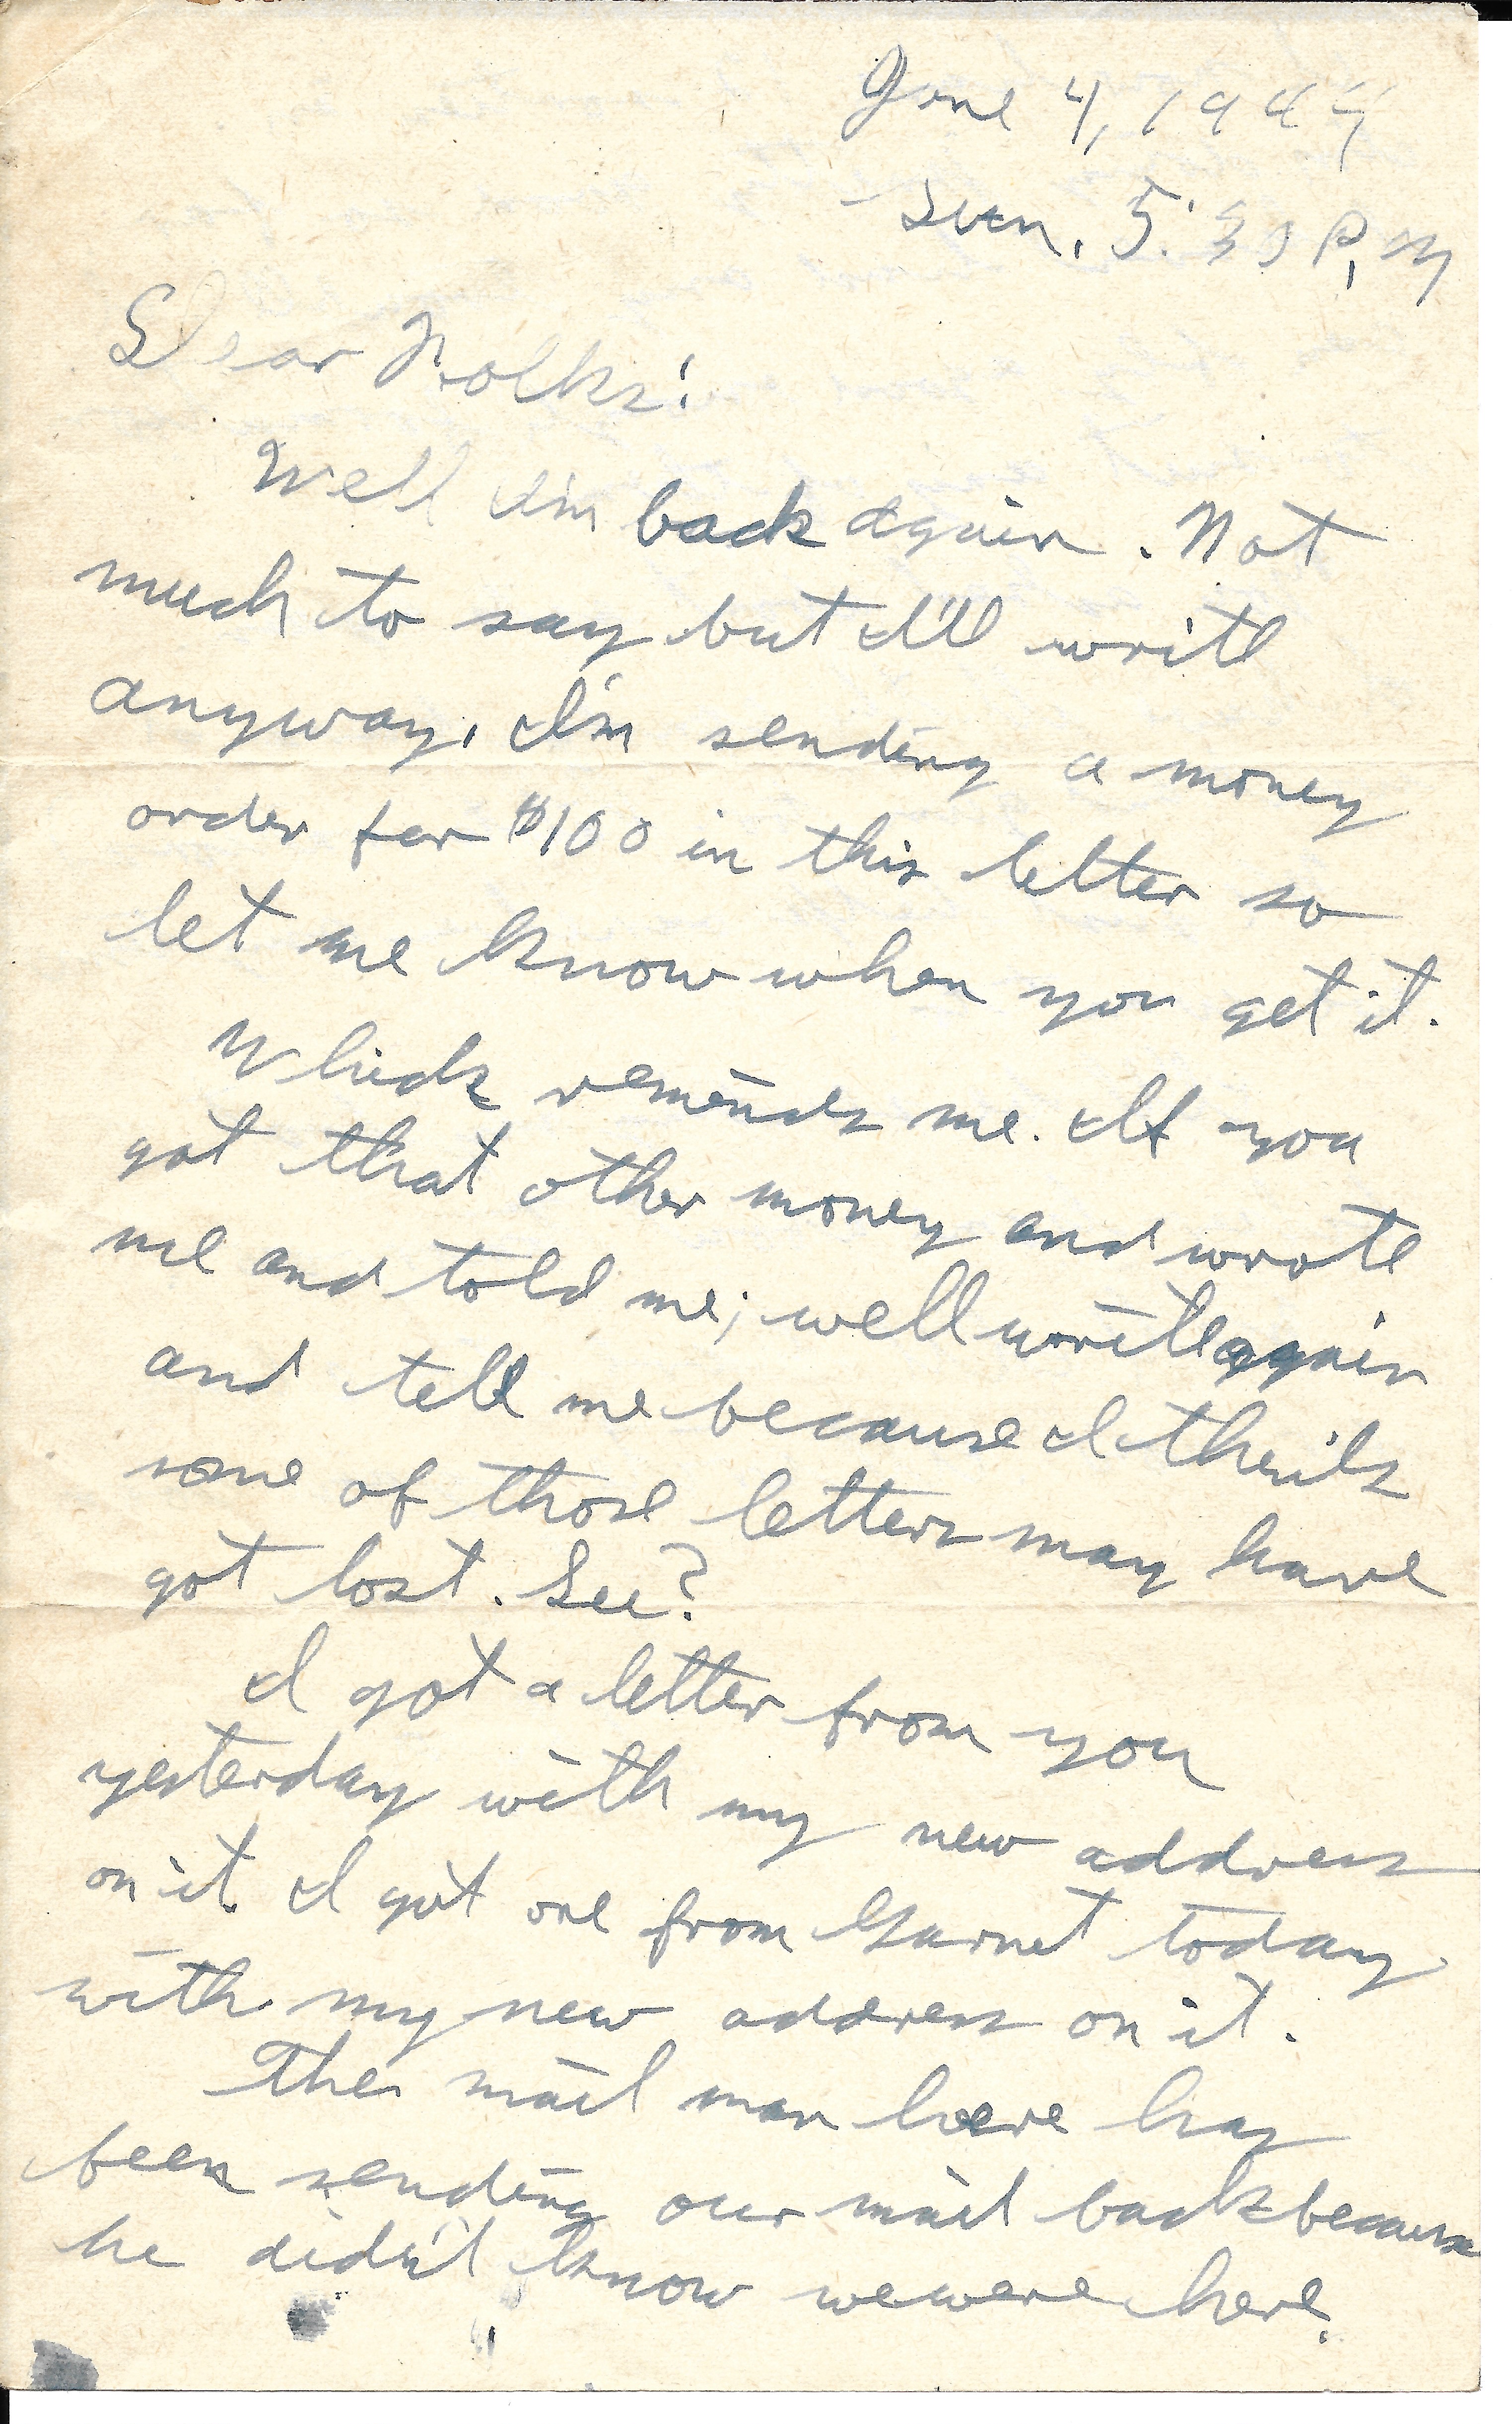 June 4, 1944
Sun. 5:30 P.M
Dear Folks:
Well I'm back again. Not
much to say but I'll write
anyway. I'm sending a money
order for $100 in this letter so
let me know when you get it.
Which reminds me. If you
got that other money and wrote
me and told me; well write again
and tell me because I think
some of those letters may have
got lost. See?
I got a letter from you
yesterday with my new address
on it. I got one from Garnet today
with my new address on it.
The mail man here has
been sending our mail back because
he didn't know we were here.